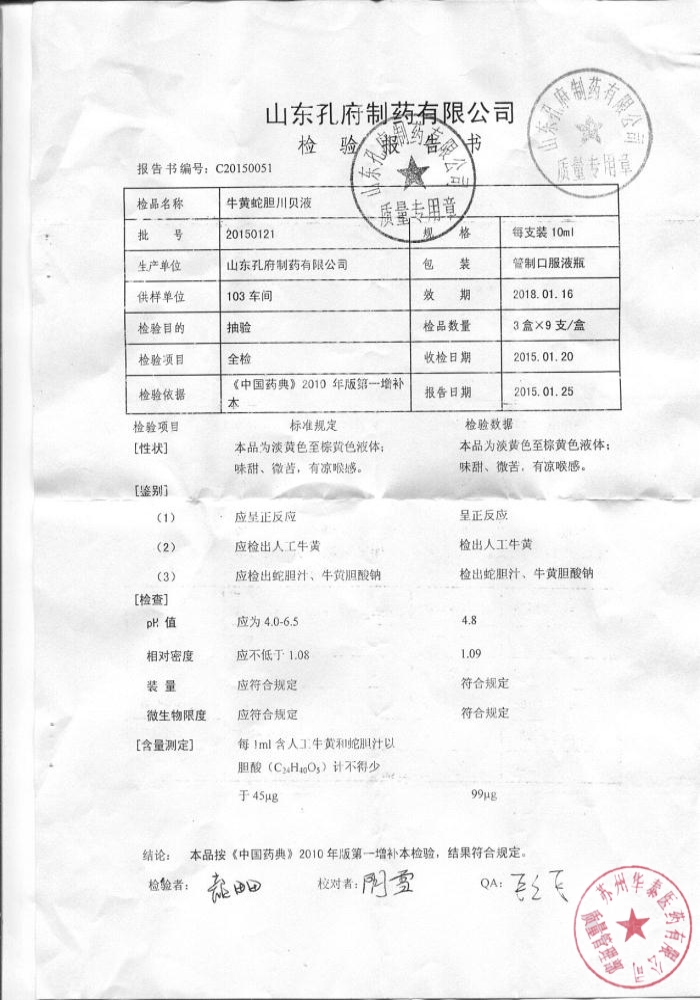 山东孔府制药有限公司
检 验 报 告 书
山东孔府制药有限公司
质量专用章
山东孔府制药有限公司
质量专用章
报告书编号：C20150051
检品名称 牛黄蛇胆川贝液
批 号 20150121 规 格 每支装 10ml
生产单位 山东孔府制药有限公司 包 装 管制口服液瓶
供样单位 103 车间 效 期 2018.01.16
检验目的 抽验 检品数量 3 盒×9 支/盒
检验项目 全检 收检日期 2015.01.20
检验依据 《中国药典》2010 年版第一增补本 报告日期 2015.01.25
检验项目 标准规定 检验数据
[性状] 本品为淡黄色至棕黄色液体； 本品为淡黄色至棕黄色液体；
味甜、微苦，有凉喉感。 味甜、微苦，有凉喉感。
[鉴别]
（1） 应呈正反应 呈正反应
（2） 应检出人工牛黄 检出人工牛黄
（3） 应检出蛇胆汁、牛黄胆酸钠 检出蛇胆汁、牛黄胆酸钠
[检查]
pH 值 应为 4.0-6.5 4.8
相对密度 应不低于 1.08 1.09
装 量 应符合规定 符合规定
微生物限度 应符合规定 符合规定
[含量测定] 每 1ml 含人工牛黄和蛇胆汁以
胆酸（C₂₄H₄₀O₅）计不得少
于 45μg 99μg
结论： 本品按《中国药典》2010 年版第一增补本检验，结果符合规定。
检验者： 校对者：周雪 QA：
苏州华泰医药有限公司
质量管理部